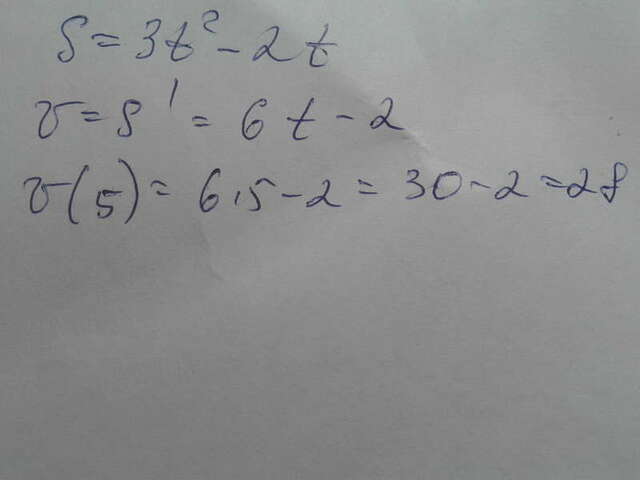 S = 3t² - 2t
v = S' = 6t - 2
v(5) = 6·5 - 2 = 30 - 2 = 28